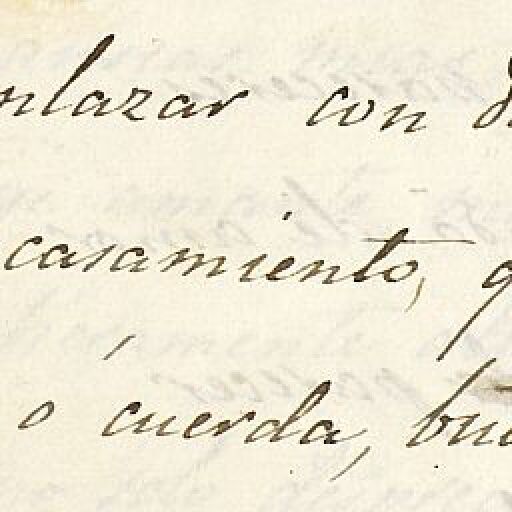 nlazar con
casamiento,
ó cuerda,